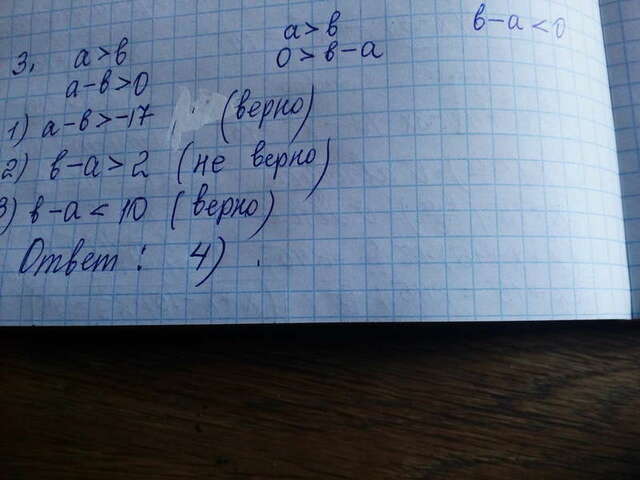 3. а>в а>в в-а<0
а-в>0 0>в-а
1) а-в>-17 (верно)
2) в-а>2 (не верно)
3) в-а<10 (верно)
Ответ: 4).